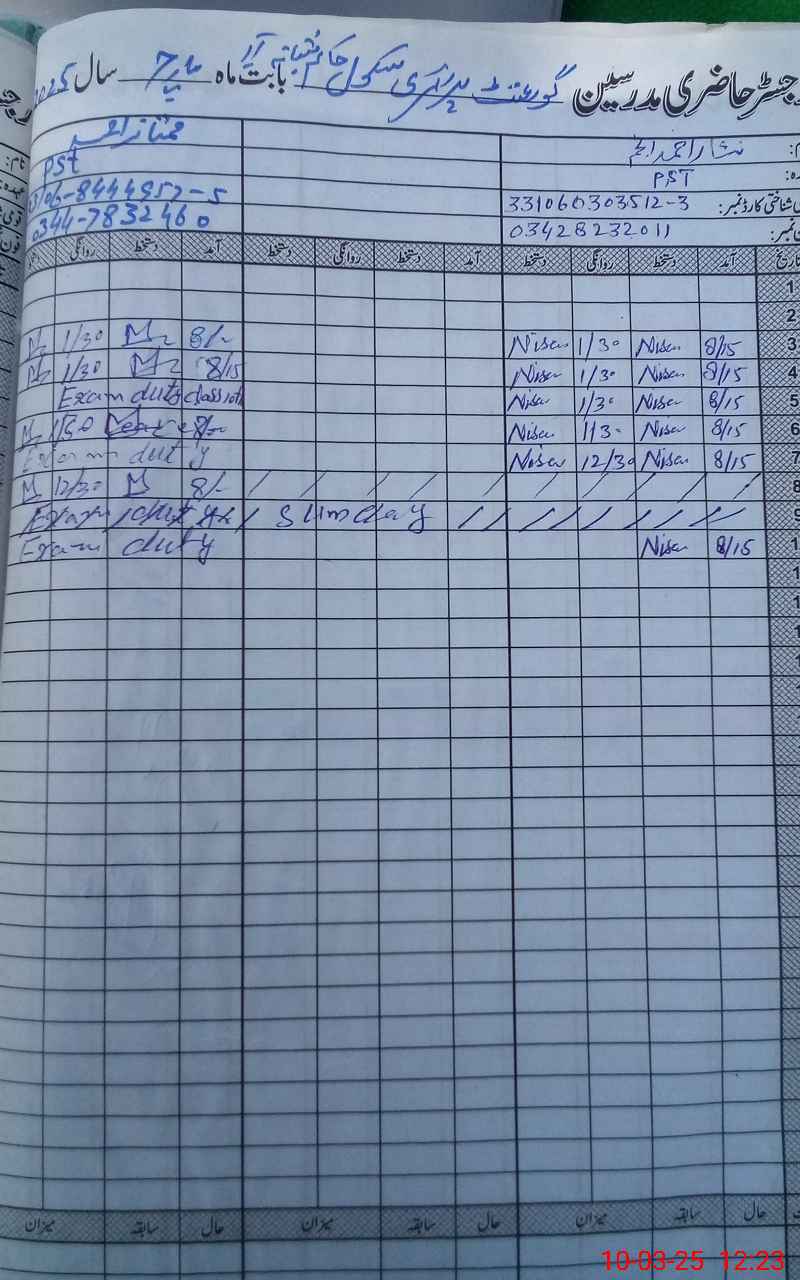 رجسٹر حاضری مدرسین گورنمنٹ پرائمری سکول بابت ماہ مارچ سال 2025
نثار احمد انجم ممتاز احمد
PST PST
شناختی کارڈ نمبر: 331060303512-3 33106-8444957-5
03428232011 0344-7832460
تاریخ آمد دستخط روانگی دستخط آمد دستخط روانگی دستخط آمد دستخط روانگی
1
2
3 8/15 Nisar 1/30 Nisar 8/- 1/30
4 8/15 Nisar 1/30 Nisar 8/15 1/30
5 8/15 Nisar 1/30 Nisar Exam duty class 10th
6 8/15 Nisar 1/30 Nisar 1/30
7 8/15 Nisar 12/30 Nisar Exam duty
8 / / / / / / / / 8/- 12/30
9 Sunday Exam duty
1 8/15 Nisar Exam duty
حال سابقہ میزان حال سابقہ میزان حال سابقہ میزان
10-03-25 12.23